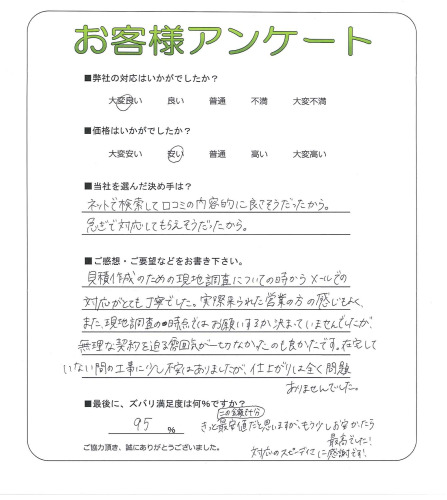 お客様アンケート
■弊社の対応はいかがでしたか?
大変良い 良い 普通 不満 大変不満
■価格はいかがでしたか?
大変安い 安い 普通 高い 大変高い
■当社を選んだ決め手は?
ネットで検索して口コミの内容的に良さそうだったから。
急ぎで対応してもらえそうだったから。
■ご感想・ご要望などをお書き下さい。
見積作成のための現地調査についての時からメールでの
対応がとても丁寧でした。実際来られた営業の方の感じもよく、
また、現地調査の時点ではお願いするか決まっていませんでしたが、
無理な契約を迫る雰囲気が一切なかったのも良かったです。在宅して
いない間の工事に少し不安はありましたが、仕上がりは全く問題
ありませんでした。
■最後に、ズバリ満足度は何%ですか?
この金額で十分
95 % きっと最安値だと思いますが、もう少しお安かったら
最高でした!
ご協力頂き、誠にありがとうございました。
対応のスピーディさに感謝です!